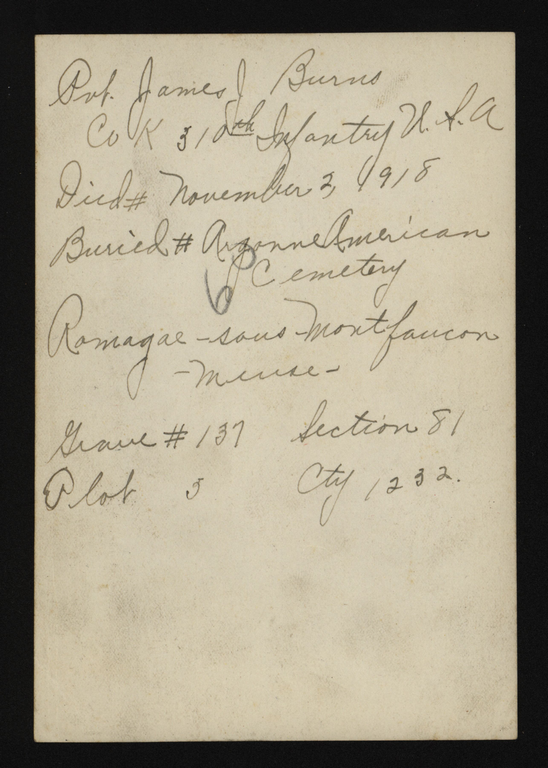 Pvt. James J Burns
Co K 310th Infantry U.S.A
Died # November 2, 1918
Buried # Argonne American
Cemetery
Romagae - sous - Montfaucon
- Meuse -
Grave # 137 Section 81
Plot 3 Cty 1232.